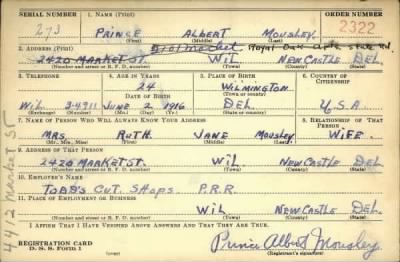 SERIAL NUMBER 1. NAME (Print) ORDER NUMBER
273 PRINCE ALBERT MOUSLEY 2322
(First) (Middle) (Last)
2. ADDRESS (Print) Royal Oak apts. State Rd.
2420 MARKET ST. WIL NEW CASTLE DEL.
(Number and street or R. F. D. number) (Town) (County) (State)
3. TELEPHONE 4. AGE IN YEARS 5. PLACE OF BIRTH 6. COUNTRY OF CITIZENSHIP
24 WILMINGTON
DATE OF BIRTH (Town or county)
WIL 3-4911 JUNE 2 1916 DEL. U.S.A.
(Exchange) (Number) (Mo.) (Day) (Yr.) (State or country)
7. NAME OF PERSON WHO WILL ALWAYS KNOW YOUR ADDRESS 8. RELATIONSHIP OF THAT PERSON
MRS. RUTH JANE MOUSLEY WIFE.
(Mr., Mrs., Miss) (First) (Middle) (Last)
9. ADDRESS OF THAT PERSON
2420 MARKET ST. WIL NEW CASTLE DEL.
(Number and street or R. F. D. number) (Town) (County) (State)
10. EMPLOYER'S NAME
TODD'S CUT. SHOPS. P.R.R.
11. PLACE OF EMPLOYMENT OR BUSINESS
WIL NEW CASTLE DEL.
(Number and street or R. F. D. number) (Town) (County) (State)
I AFFIRM THAT I HAVE VERIFIED ABOVE ANSWERS AND THAT THEY ARE TRUE.
REGISTRATION CARD Prince Albert Mousley
D. S. S. Form 1 (over) (Registrant's signature)
442 Market St